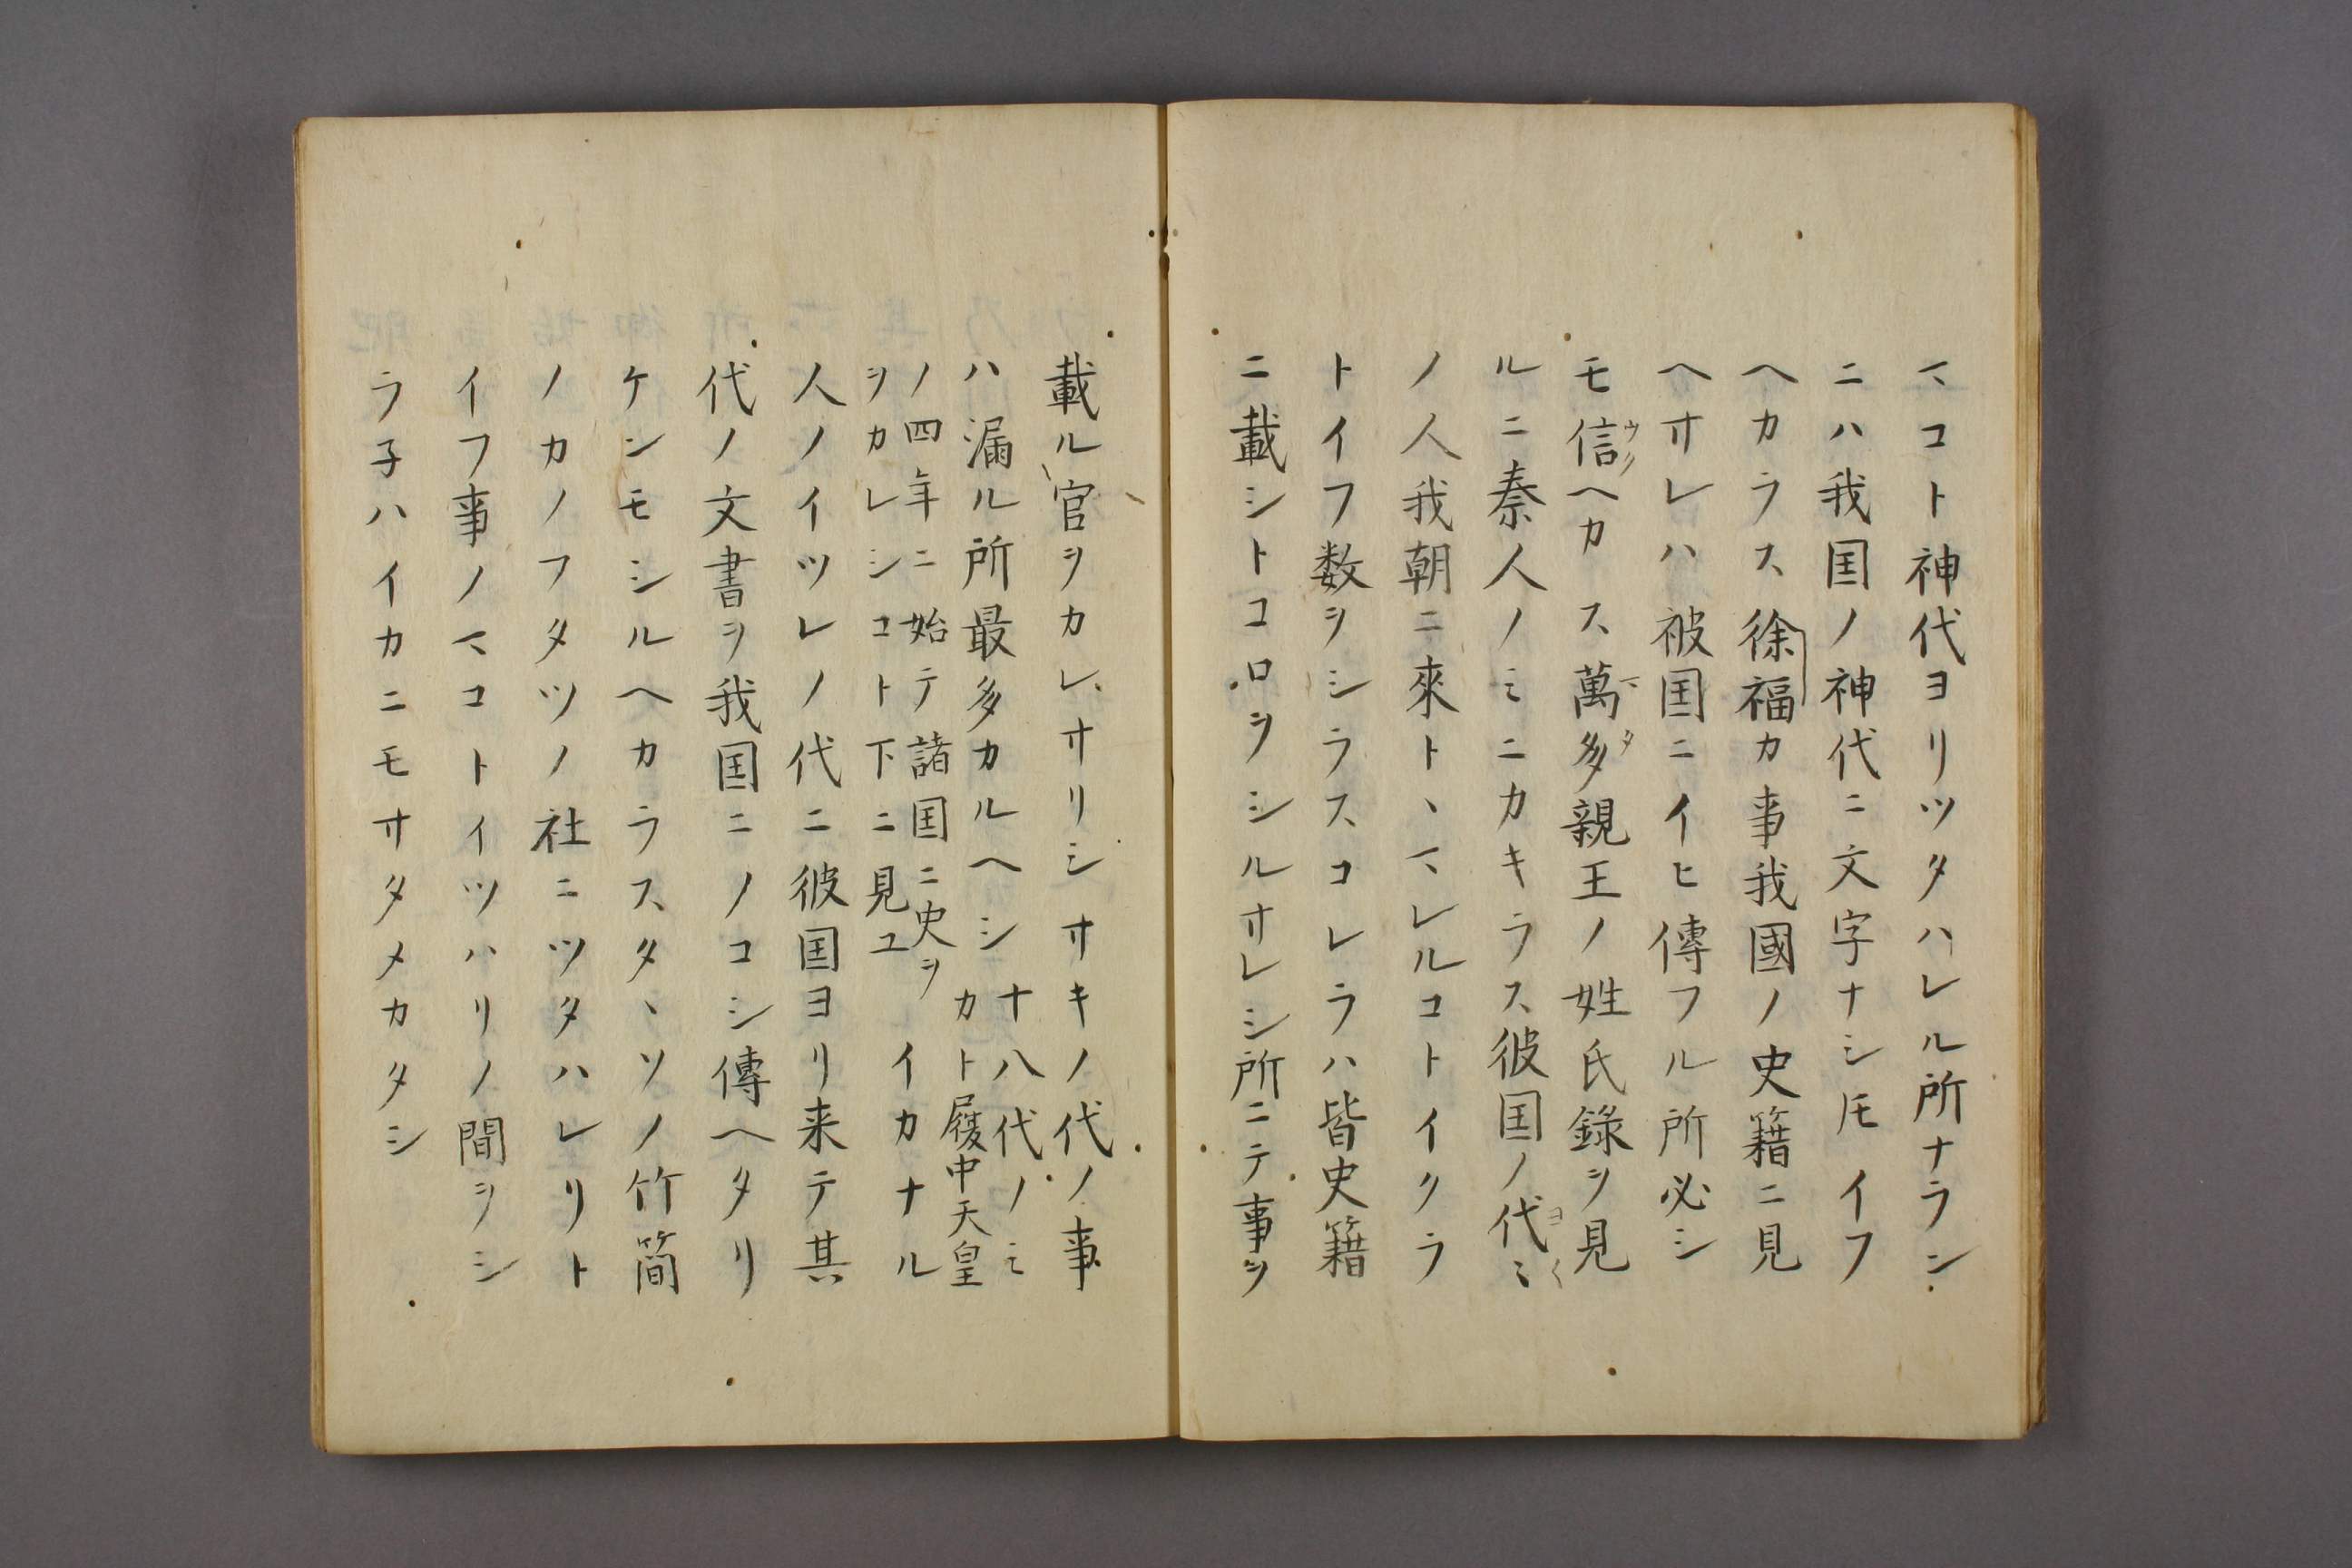 マコト神代ヨリツタハレル所ナラン
ニハ我国ノ神代ニ文字ナシ𪜈イフ
ヘカラス徐福カ事我國ノ史籍ニ見
ヘサレハ被国ニイヒ傳フル所必シ
モ信ヘカラス萬多親王ノ姓氏錄ヲ見
ウク
マタ
ルニ秦人ノミニカキラス彼国ノ代ミ
ヨ〱
ノ人我朝ニ來トヽマレルコトイクラ
トイフ数ヲシラスコレラハ皆史籍
ニ載シトコロヲシルサレシ所ニテ事ヲ
載ル官ヲカレサリシサキノ代ノ事
ハ漏ル所最多カルヘシ
十八代ノミ
カト履中天皇
ノ四年ニ始テ諸国ニ史ヲ
ヲカレシコト下ニ見ユ
イカナル
人ノイツレノ代ニ彼国ヨリ来テ其
代ノ文書ヲ我国ニノコシ傳ヘタリ
ケンモシルヘカラスタヽソノ竹簡
ノカノフタツノ社ニツタハレリト
イフ事ノマコトイツハリノ間ヲシ
ラ子ハイカニモサタメカタシ